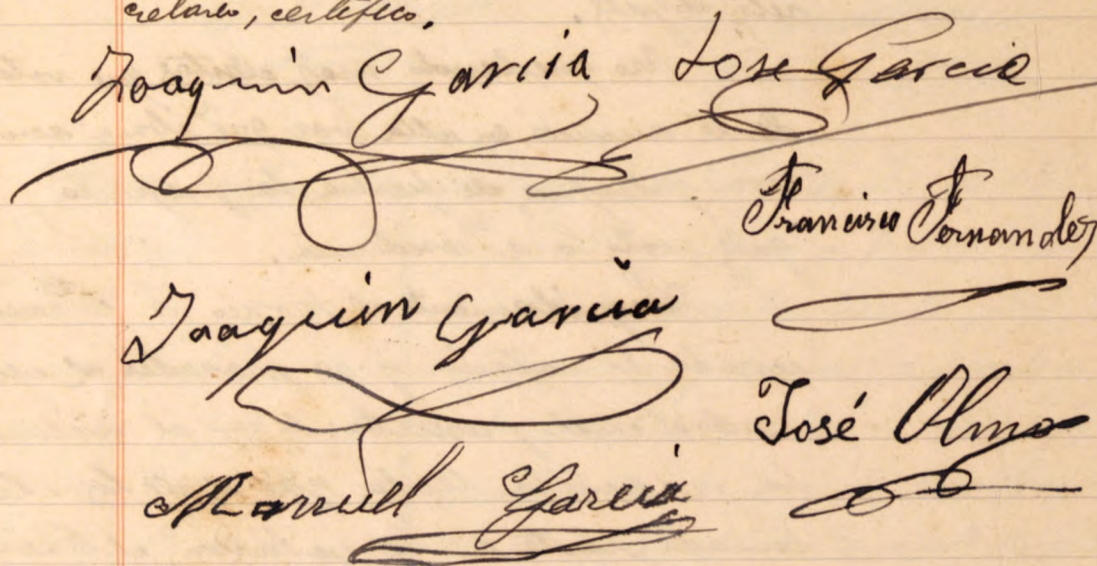 cretario, certifico.
Joaquin Garcia Jose Garcia
Francisco Fernandez
Joaquin Garcia
José Olmo
Manuel Garcia